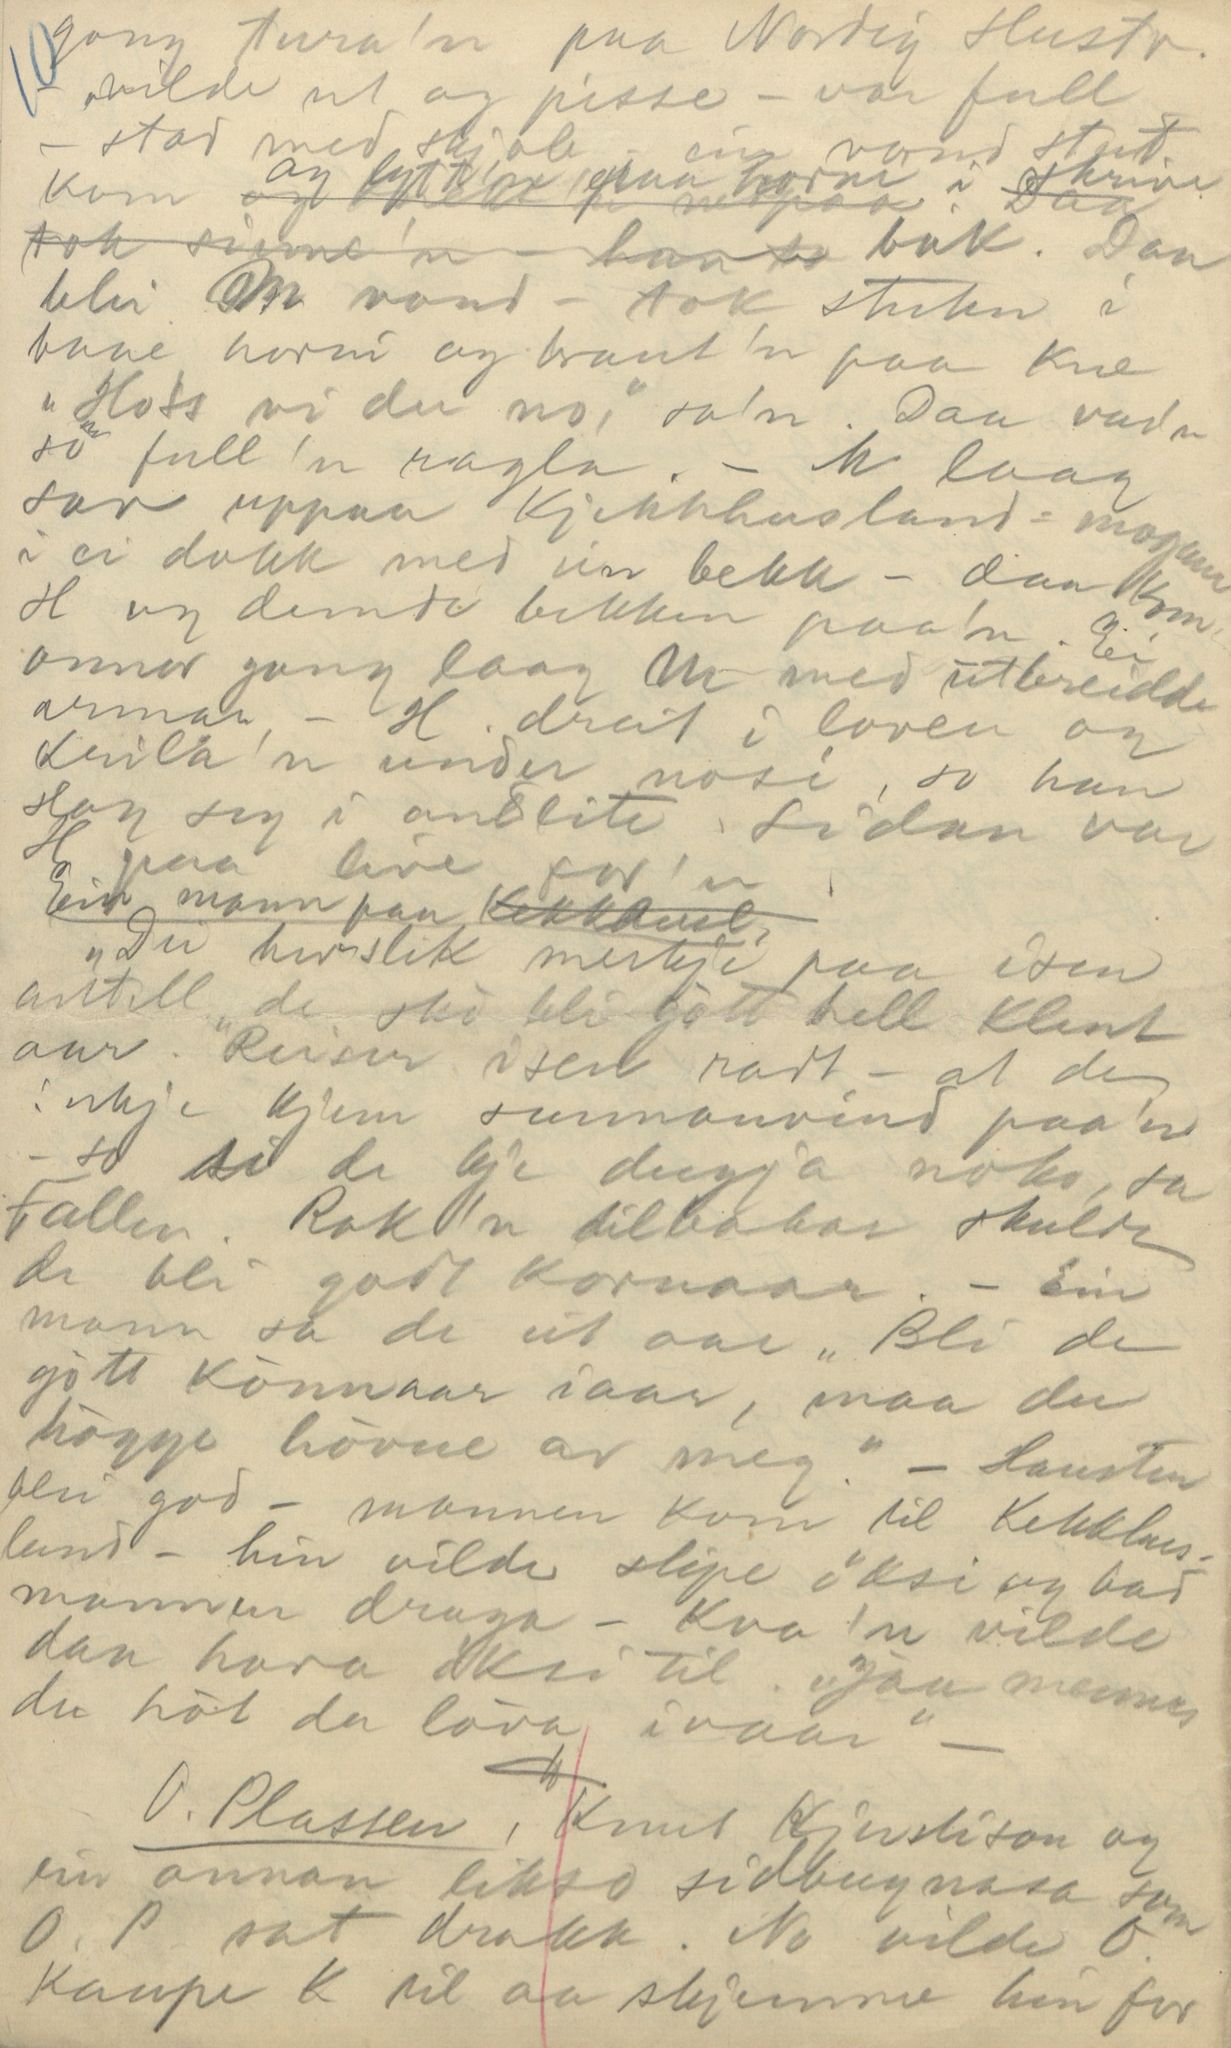 10
gong tura'n paa Nordig Hustr.
- vilde ut og pisse - var full
- stod med skjole - ein vond stut
kom og lyft'n paa horni i skrivi
bak. Daa
blei M vond - tok stuten i
baae horni og braut'n paa kne
"Hoss vi du no," sa'n. Daa vad'n
so full 'n ragla. - M laag
sov uppaa Kjekkhusland-mogane
i ei dokk med ein bekk - daa kom
H og demde bekken paa'n. Ei
annor gong laag M med utbreidde
armar, - H. dreit i loven og
krila'n under nosi, so han
slog seg i andlite. Sidan var
H paa live for'n
Ein mann paa Kekkhusl,
"Dei her slik merkje paa isen
anttell "de sko bli gött hell klent
aar." Reiser isen radt - at de
inkje kjem sunnanvind paa'n
- so si de kje duggja noko, sa
Fallen. Rak'n tilbakar skulde
de bli godt kornaar. - Ein
mann sa de ut aae "Bli de
gött könnaar iaar, maa du
högge hövue av meg." - Hausten
blei god - mannen kom til Kekkhus-
land - hin vilde slipe öksi og bad
mannen draga - Kva 'n vilde
daa hava öksi til. "Jau mennes
du höt du löva ivaar" -
O. Plassen, Knut Kjerstison og
ein annan likso sidbugnasa som
O. P sat drakk. No vilde O.
kaupe K til aa skjemme hin for